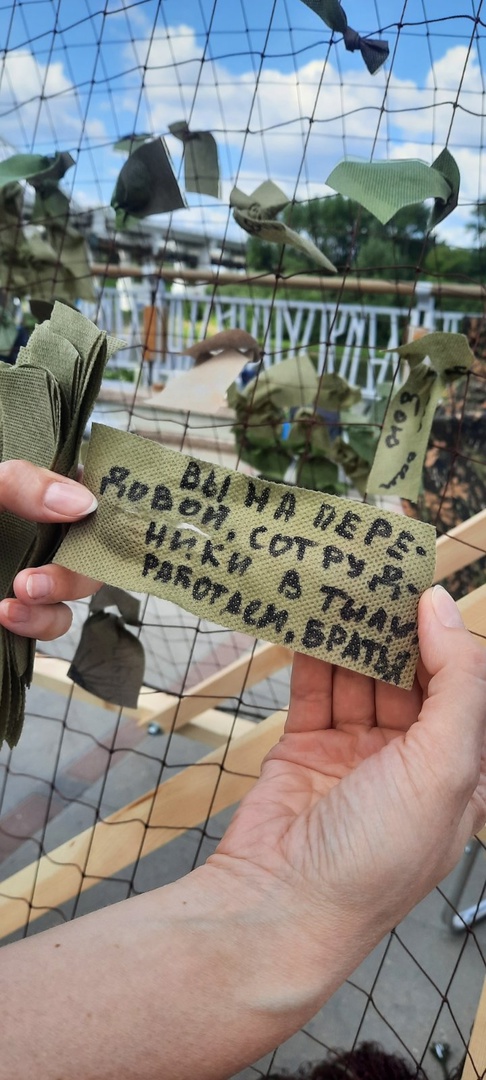 ВЫ НА ПЕРЕ-
ДОВОЙ, СОТРУД-
НИКИ В ТЫЛУ
РАБОТАЕМ, БРАТЬЯ